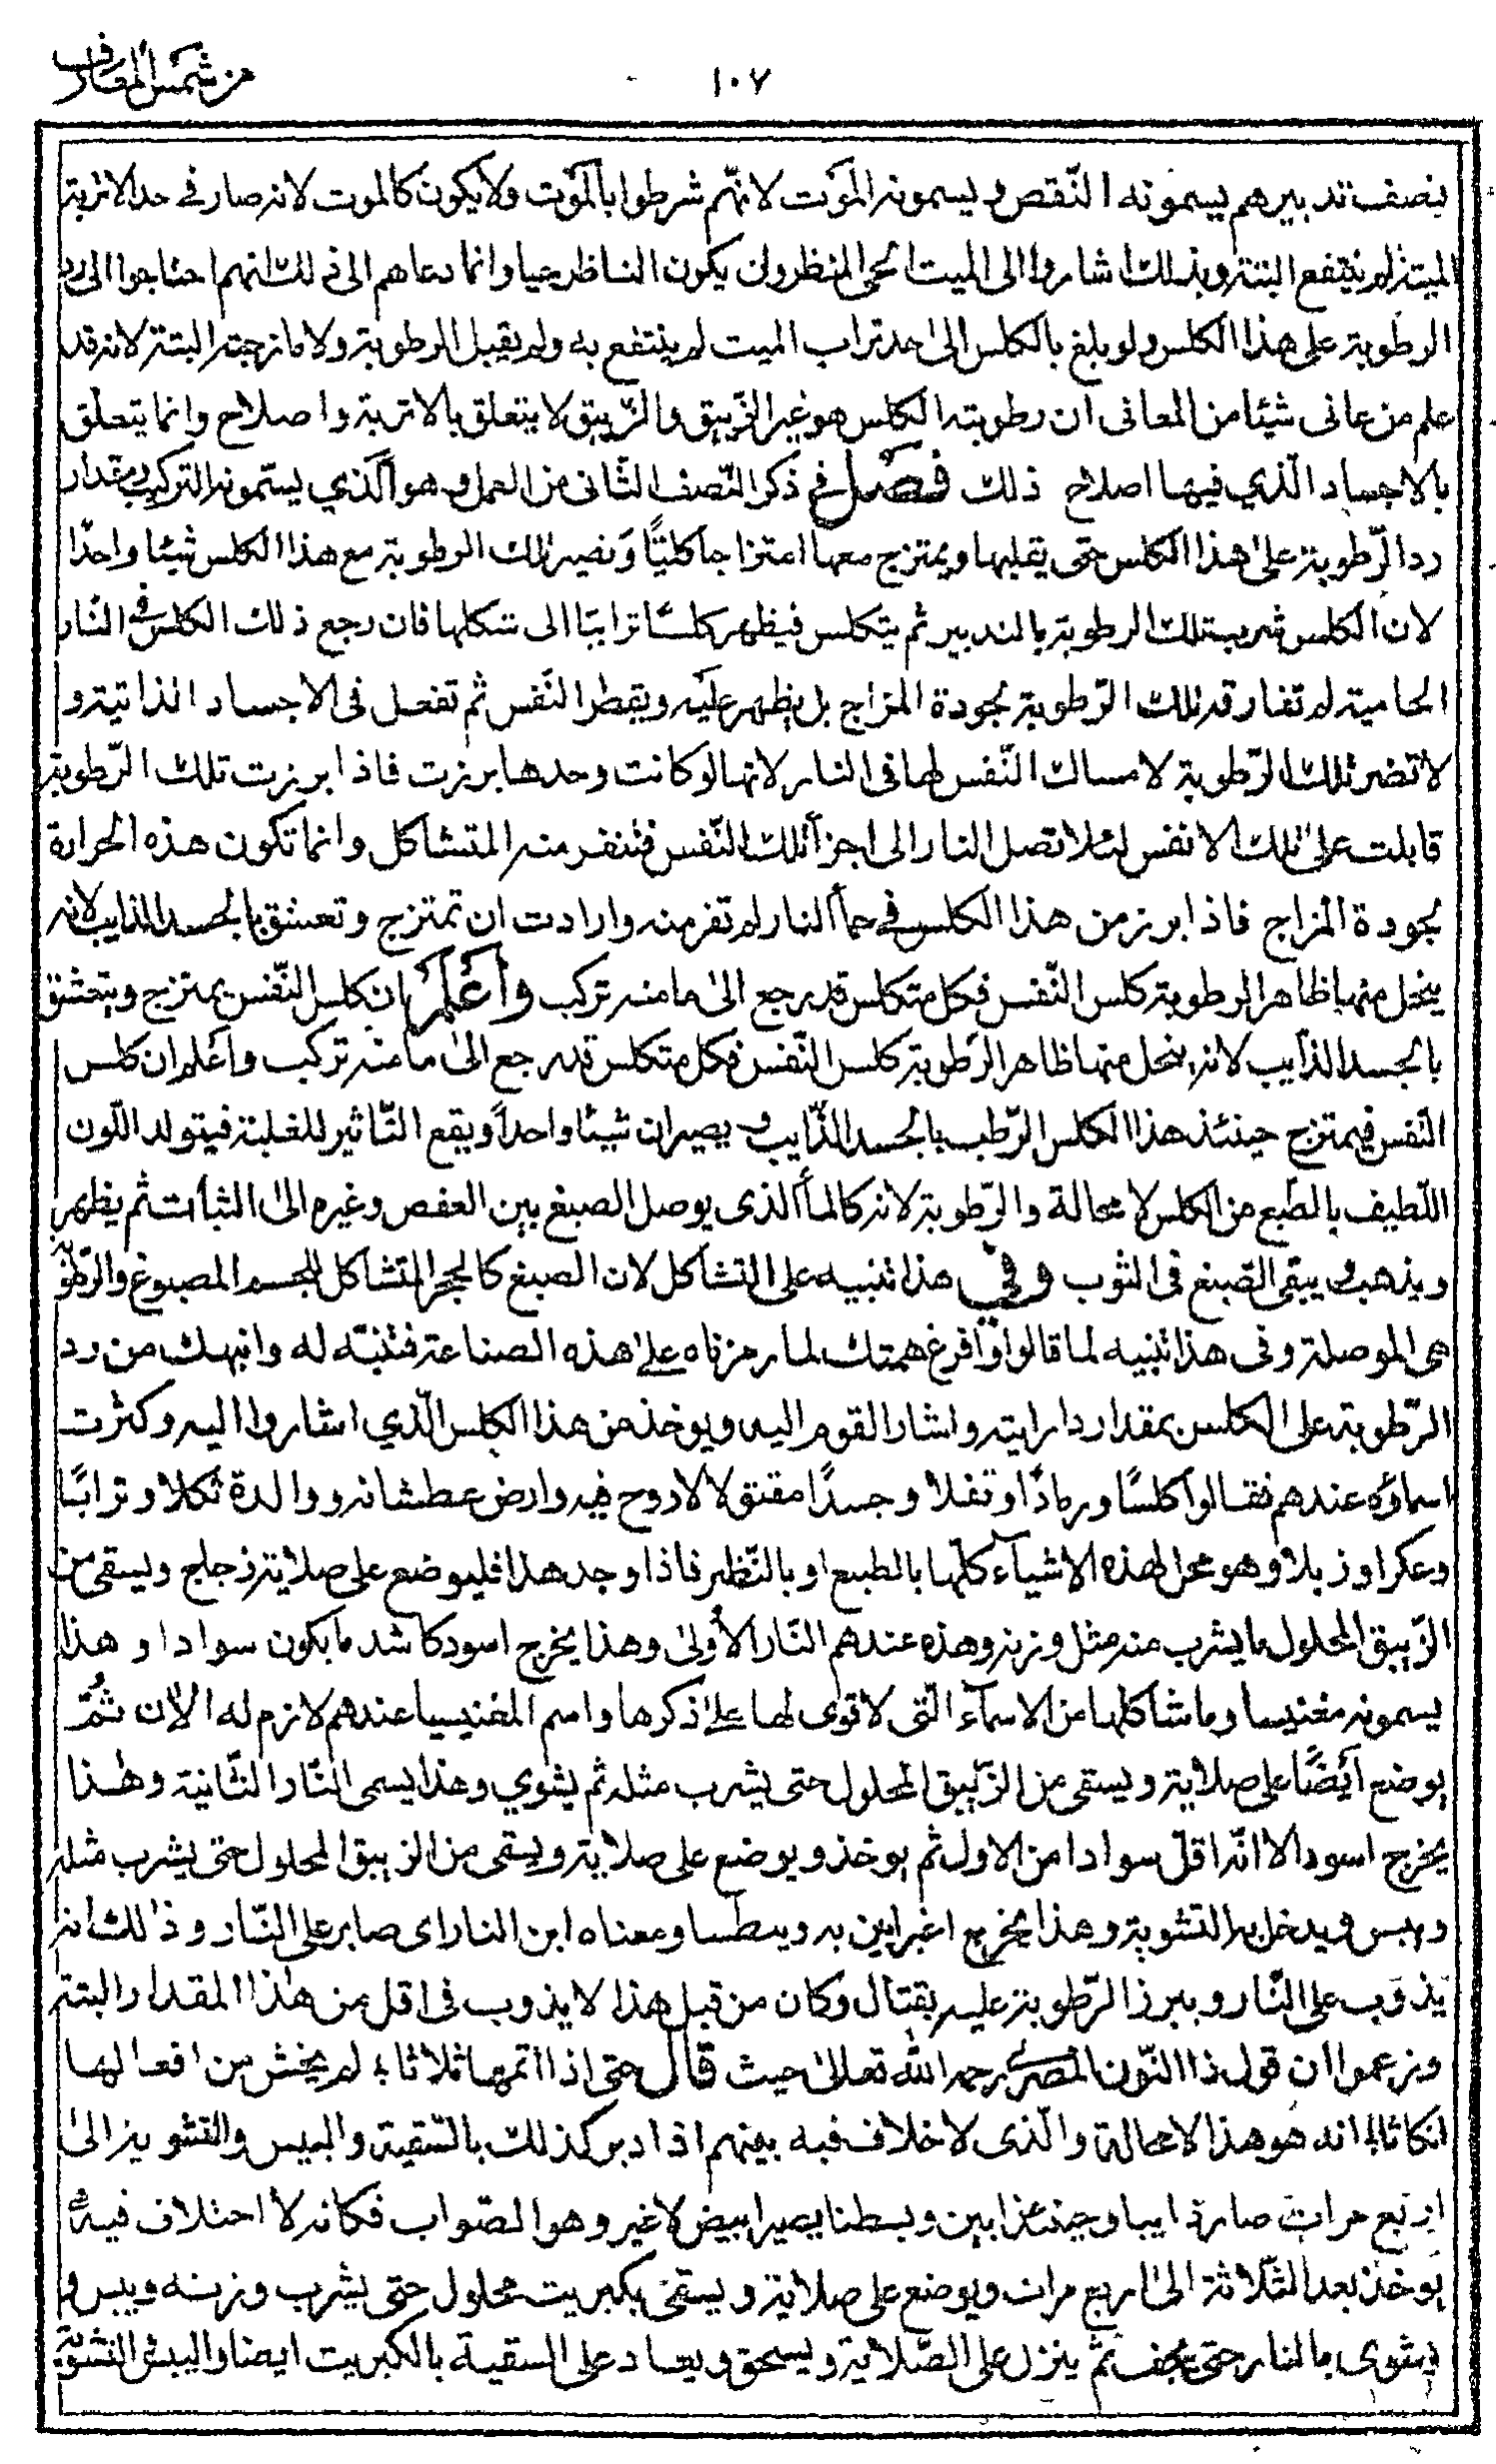 من شمس المعارف
١٠٧
نصف تدبيرهم يسمونه النّقص ويسمونه الموت لانهّم شرطوا بالموت ولا يكون كالموت لانه صار في حد الاتربة
الميتة لم ينتفع البتة وبذلك اشاروا الى الميت الحى المنظر وان يكون الناظر حيا وانما دعاهم الى ذلك انهم احتاجوا الى رد
الرطوبة على هذا الكلس ولو بلغ بالكلس الى حد تراب الميت لم ينتفع به ولم يقبل الرطوبة ولا مازجته البتة لانه قد
علم من عانى شيئا من المعانى ان رطوبته الكلس هو غير الزّيبق والزّيبق لا يتعلق بالاتربة واصلاح وانما يتعلق
بالاجساد الّذي فيها اصلاح ذلك فصل في ذكر النّصف الثّانى من العمل وهو الّذي يسّمونه التركيب ومقدار
رد الرّطوبة على هذا الكلس حتى يقلبها ويمتزج معها امتزاجا كليًّا وتصير تلك الرطوبة مع هذا الكلس شيئا واحدًا
لان الكلس شربت تلك الرطوبة بالتدبير ثم يتكلس فيظهر كلسًا ترابيًا الى شكلها فان رجع ذلك الكلس في النّار
الحامية لم تفارقه تلك الرّطوبة بجودة المزاج بل يظهر عليه ويقطر النّفس ثم تفعل فى الاجساد الذاتية و
لا تضر تلك الرّطوبة لامساك النّفس لها فى النار لانها لو كانت وحدها برزت فاذا برزت تلك الرّطوبة
قابلت على تلك الانفس لئلا تصل النار الى اجزأ تلك النّفس فتنفر منه المتشاكل وانما تكون هذه الحرارة
بجودة المزاج فاذا برز من هذا الكلس في حمأ النار لم تفر منه وارادت ان تمتزج وتعشق بالجسد الذايب لانه
ينحل منها ظاهر الرطوبة كلس النّفس فكل متكلس قد رجع الى ما منه تركب واعلم ان كلس النّفس يمتزج ويتعشق
بالجسد الذايب لانه ينحل منها ظاهر الرّطوبة كلس النّفس فكل متكلس قد رجع الى ما منه تركيب واعلم ان كلس
النّفس فيمتزج حينئذ هذا الكلس الرّطب بالجسد الذّايب ويصيران شيئا واحداً ويقع التّاثير للغلبة فيتولد اللّون
اللّطيف بالطّبع من الكلس لا محالة والرّطوبة لانه كالمأ الذى يوصل الصبغ بين العفص وغيره الى الثبات ثم يظهر
ويذهب ويبقى الصّبغ فى الثوب وفي هذا تنبيه على التشاكل لان الصبغ كالحجر المتشاكل للجسد المصبوغ والرّطوبة
هى الموصلة وفى هذا تنبيه لما قالوا وافرغ همتك لما رمزناه على هذه الصناعة فتنبّه له وانبهك من رد
الرّطوبة على الكلس بمقدار دارايته واشار القوم اليه ويوخذ من هذا الكلس الّذي اشاروا اليه وكثرت
اسماؤه عندهم فقالوا كلسًا ورمادًا وتفلا وجسدًا لا روح فيه وارض عطشانه ووالدة ثكلا وترابًا
وعكرا وزبلا وهو محل لهذه الاشياء كلّها بالطبع او بالنّظر فاذا وجد هذا فليوضع على صلاية زجاج ويسقى من
الزّيبق المحلول ما يشرب منه مثل وزنه وهذه عندهم النّار الأولى وهذا يخرج اسود كاشد ما يكون سوادا وهذا
يسمونه مغنيسا وما شاكلها من الاسمآء الّتى لا قوى لها على ذكرها واسم المغنيسيا عندهم لازم له الان ثمّ
يوضع أيضًا على صلاية ويستقى من الزّيبق المحلول حتى يشرب مثله ثم يشوي وهذا يسمى النّار الثّانية وهذا
يخرج اسود الا انّه اقلّ سوادا من الاول ثم يوخذ ويوضع على صلاية ويسقى من الزيبق المحلول حتى يشرب مثله
ويبس ويدخل به التشوية وهذا يخرج اغبر ابين به ويسطسا ومعناه ابن النار اى صابر على النّار وذلك انه
يذوب على النّار ويبرز الرّطوبة عليه بقتال وكان من قبل هذا لا يذوب فى اقل من هذا المقدار البتة
وزعموا ان قول ذا النّون المصرى رحمه الله تعالى حيث قال حتى اذا اتمها ثلاثا لم يخش من افعالها
انكاثا انه هو هذا لا محالة والّذى لا خلاف فيه بينهم اذا دبر كذلك بالتّسقية واليبس والتشوية الى
اربع مرات صار ذايبا وحينئذ ابين وبسطنا يصير ابيض لا غير وهو الصّواب فكانه لا اختلاف فيه
يوخذ بعد الثّلاثة الى اربع مرات ويوضع على صلاية ويسقى بكبريت محلول حتى يشرب وزنه وييبس و
يشوى بالنار حتى يجف ثم ينزل على الصّلاية ويسحق ويعاد على السقية بالكبريت ايضا واليبش التشوية